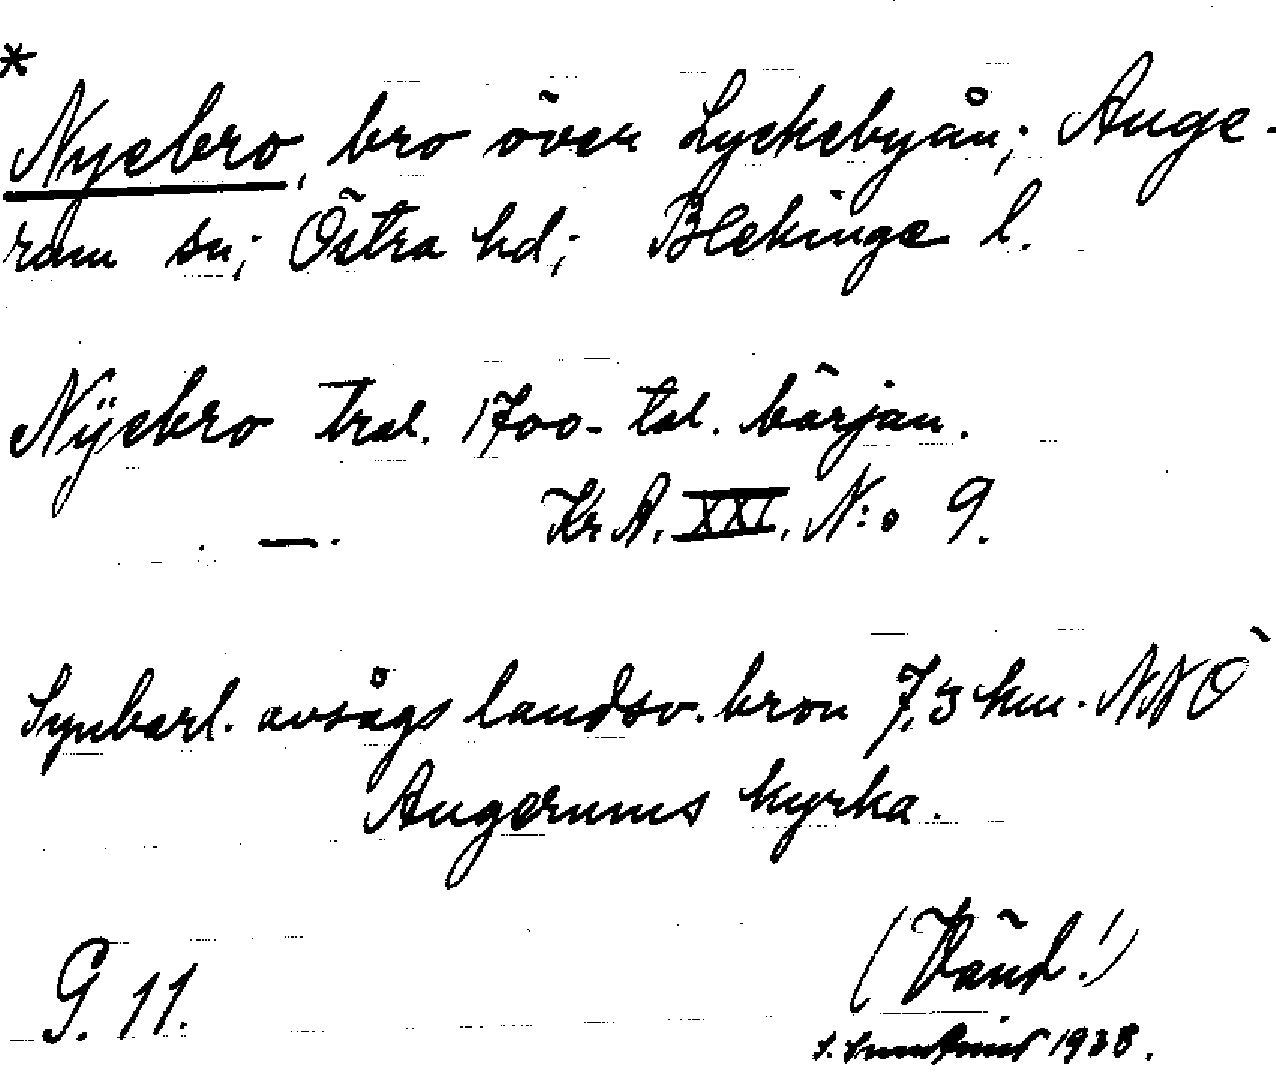 *
Nyebro, bro över Lyckebyån; Auge-
rum sn; Östra hd; Blekinge l.
Nÿebro trol. 1700-tal. början.
— Kr A. XXI. N:o 9.
Synbarl. avsågs landsv. bron 7,3 km. NNÖ
Augerums kyrka.
(Vänd!)
G. 11.
1938.